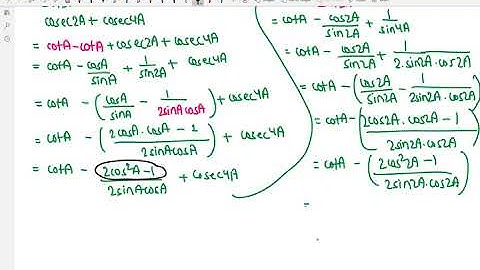 cosec2A + cosec4A
= cotA - cotA + cosec2A + cosec4A
= cotA - cosA/sinA + 1/sin2A + cosec4A
= cotA - (cosA/sinA - 1/2sinAcosA) + cosec4A
= cotA - (2cosA.cosA - 1/2sinAcosA) + cosec4A
= cotA - 2cos²A-1/2sinAcosA + cosec4A
= cotA - cos2A/sin2A + 1/sin4A
= cotA - cos2A/sin2A + 1/2.sin2A.cos2A
= cotA - (cos2A/sin2A - 1/2sin2A.cos2A)
= cotA - (2cos2A.cos2A - 1/2sin2A.cos2A)
= cotA - (2cos²2A - 1/2sin2A.cos2A)
=